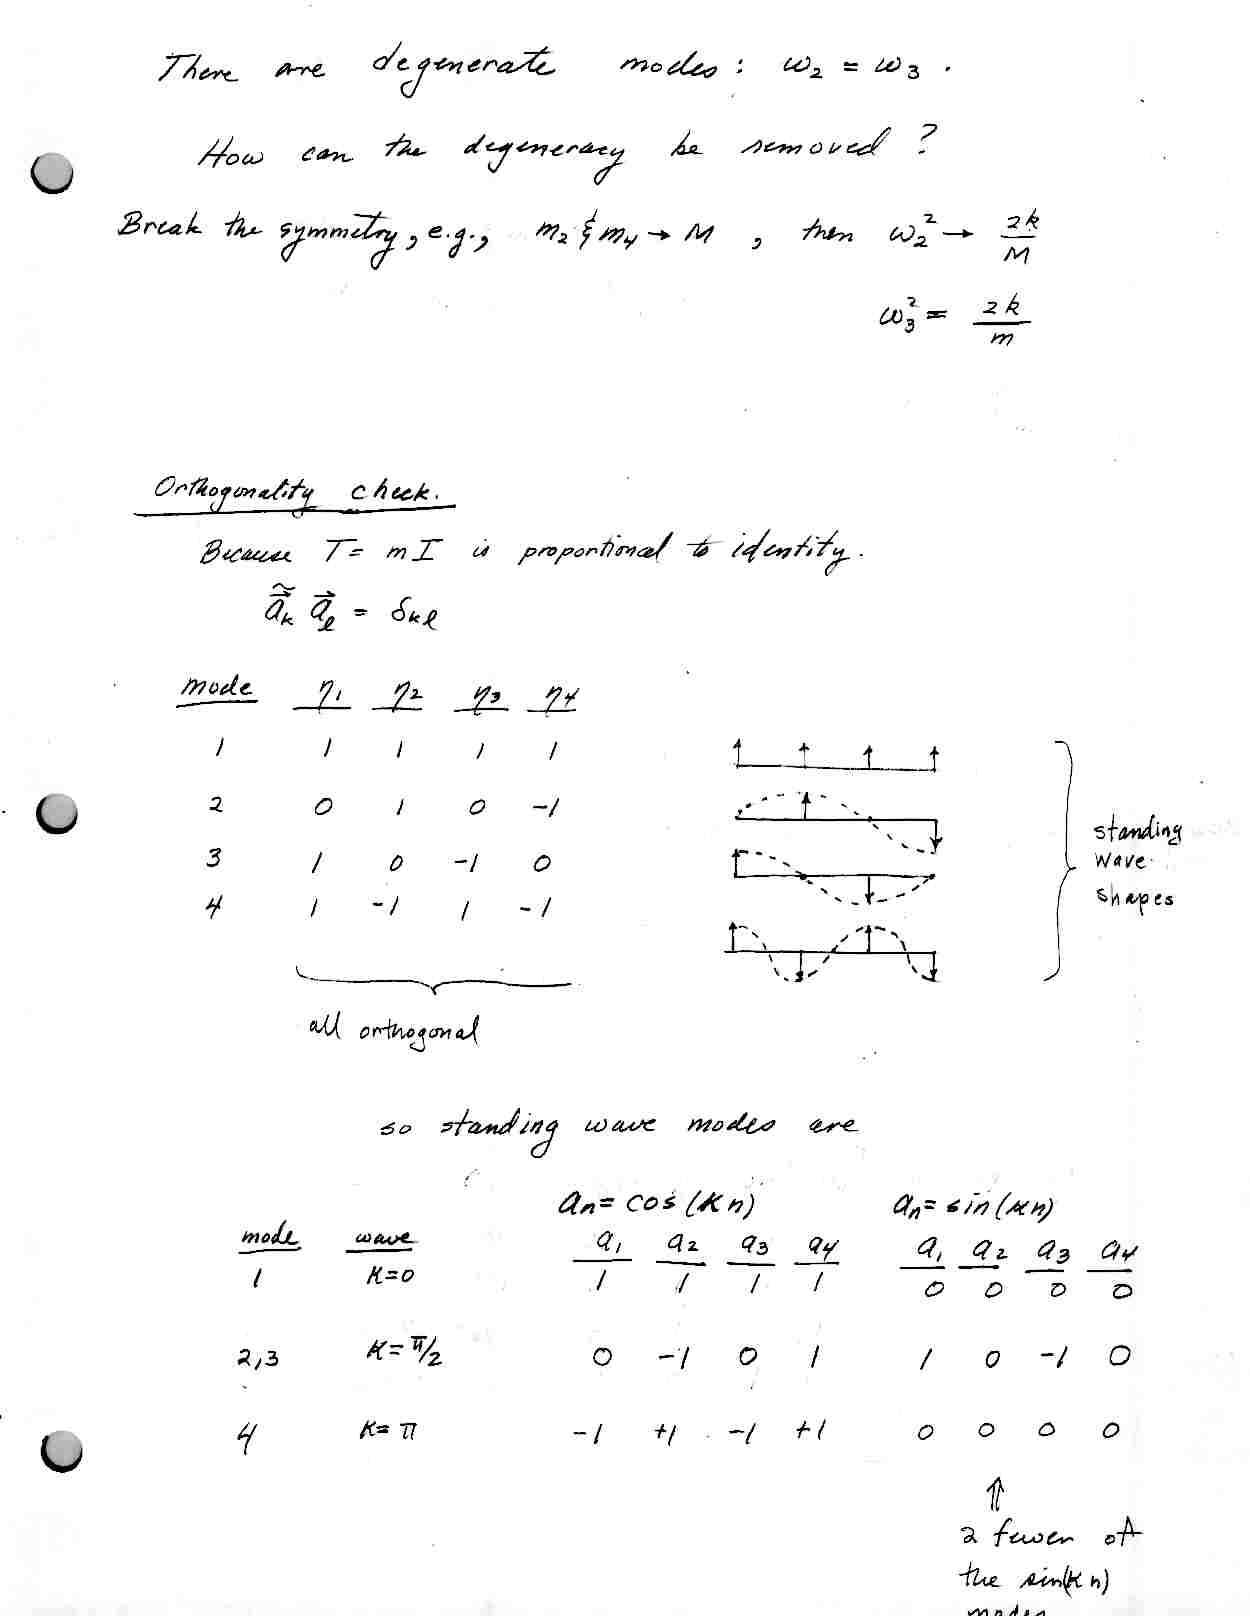 There are degenerate modes: ω₂ = ω₃.
How can the degeneracy be removed?
Break the symmetry, e.g., m₂ & m₄ → M, then ω₂² → 2k/M
ω₃² = 2k/m
Orthogonality check.
Because T = m I is proportional to identity.
ã⃗ₖ a⃗ₗ = δₖₗ
mode η₁ η₂ η₃ η₄
1 1 1 1 1
2 0 1 0 -1
3 1 0 -1 0
4 1 -1 1 -1
standing
wave
shapes
all orthogonal
so standing wave modes are
aₙ = cos(κn) aₙ = sin(κn)
mode wave a₁ a₂ a₃ a₄ a₁ a₂ a₃ a₄
1 κ=0 1 1 1 1 0 0 0 0
2,3 κ=π/2 0 -1 0 1 1 0 -1 0
4 κ=π -1 +1 -1 +1 0 0 0 0
⇑
2 fewer of
the sin(κn)
modes